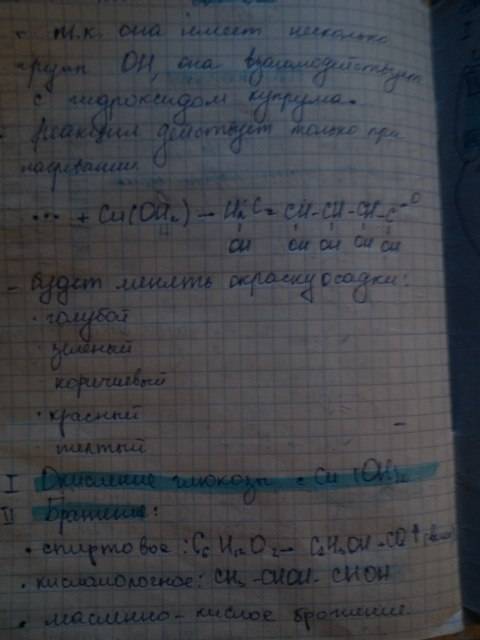 т.к. она имеет несколько
групп OH, она взаимодействует
с гидроксидом купрума.
Реакция действует только при
нагревании
... + Cu(OH₂) → H₂C - CH-CH-CH-C=O
OH OH OH OH OH
- будет менять окраску осадки:
· голубой
· зеленый
коричневый
· красный
желтый
I Окисление глюкозы с Cu(OH)₂
II Брожение:
• спиртовое: C₆H₁₂O₂→ C₂H₅OH-CO₂↑
• кисломолочное: CH₃-CHOH-CHOH
• масленно-кислое брожение